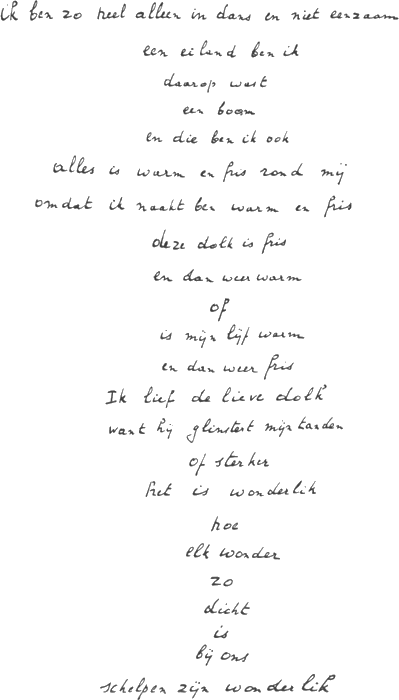 ik ben zo heel alleen in dans en niet eenzaam
een eiland ben ik
daarop wast
een boom
en die ben ik ook
alles is warm en fris rond mij
omdat ik naakt ben warm en fris
deze dolk is fris
en dan weer warm
of
is mijn lijf warm
en dan weer fris
Ik lief de lieve dolk
want hij glinstert mijn tanden
of sterker
het is wonderlik
hoe
elk wonder
zo
dicht
is
bij ons
schelpen zijn wonderlik